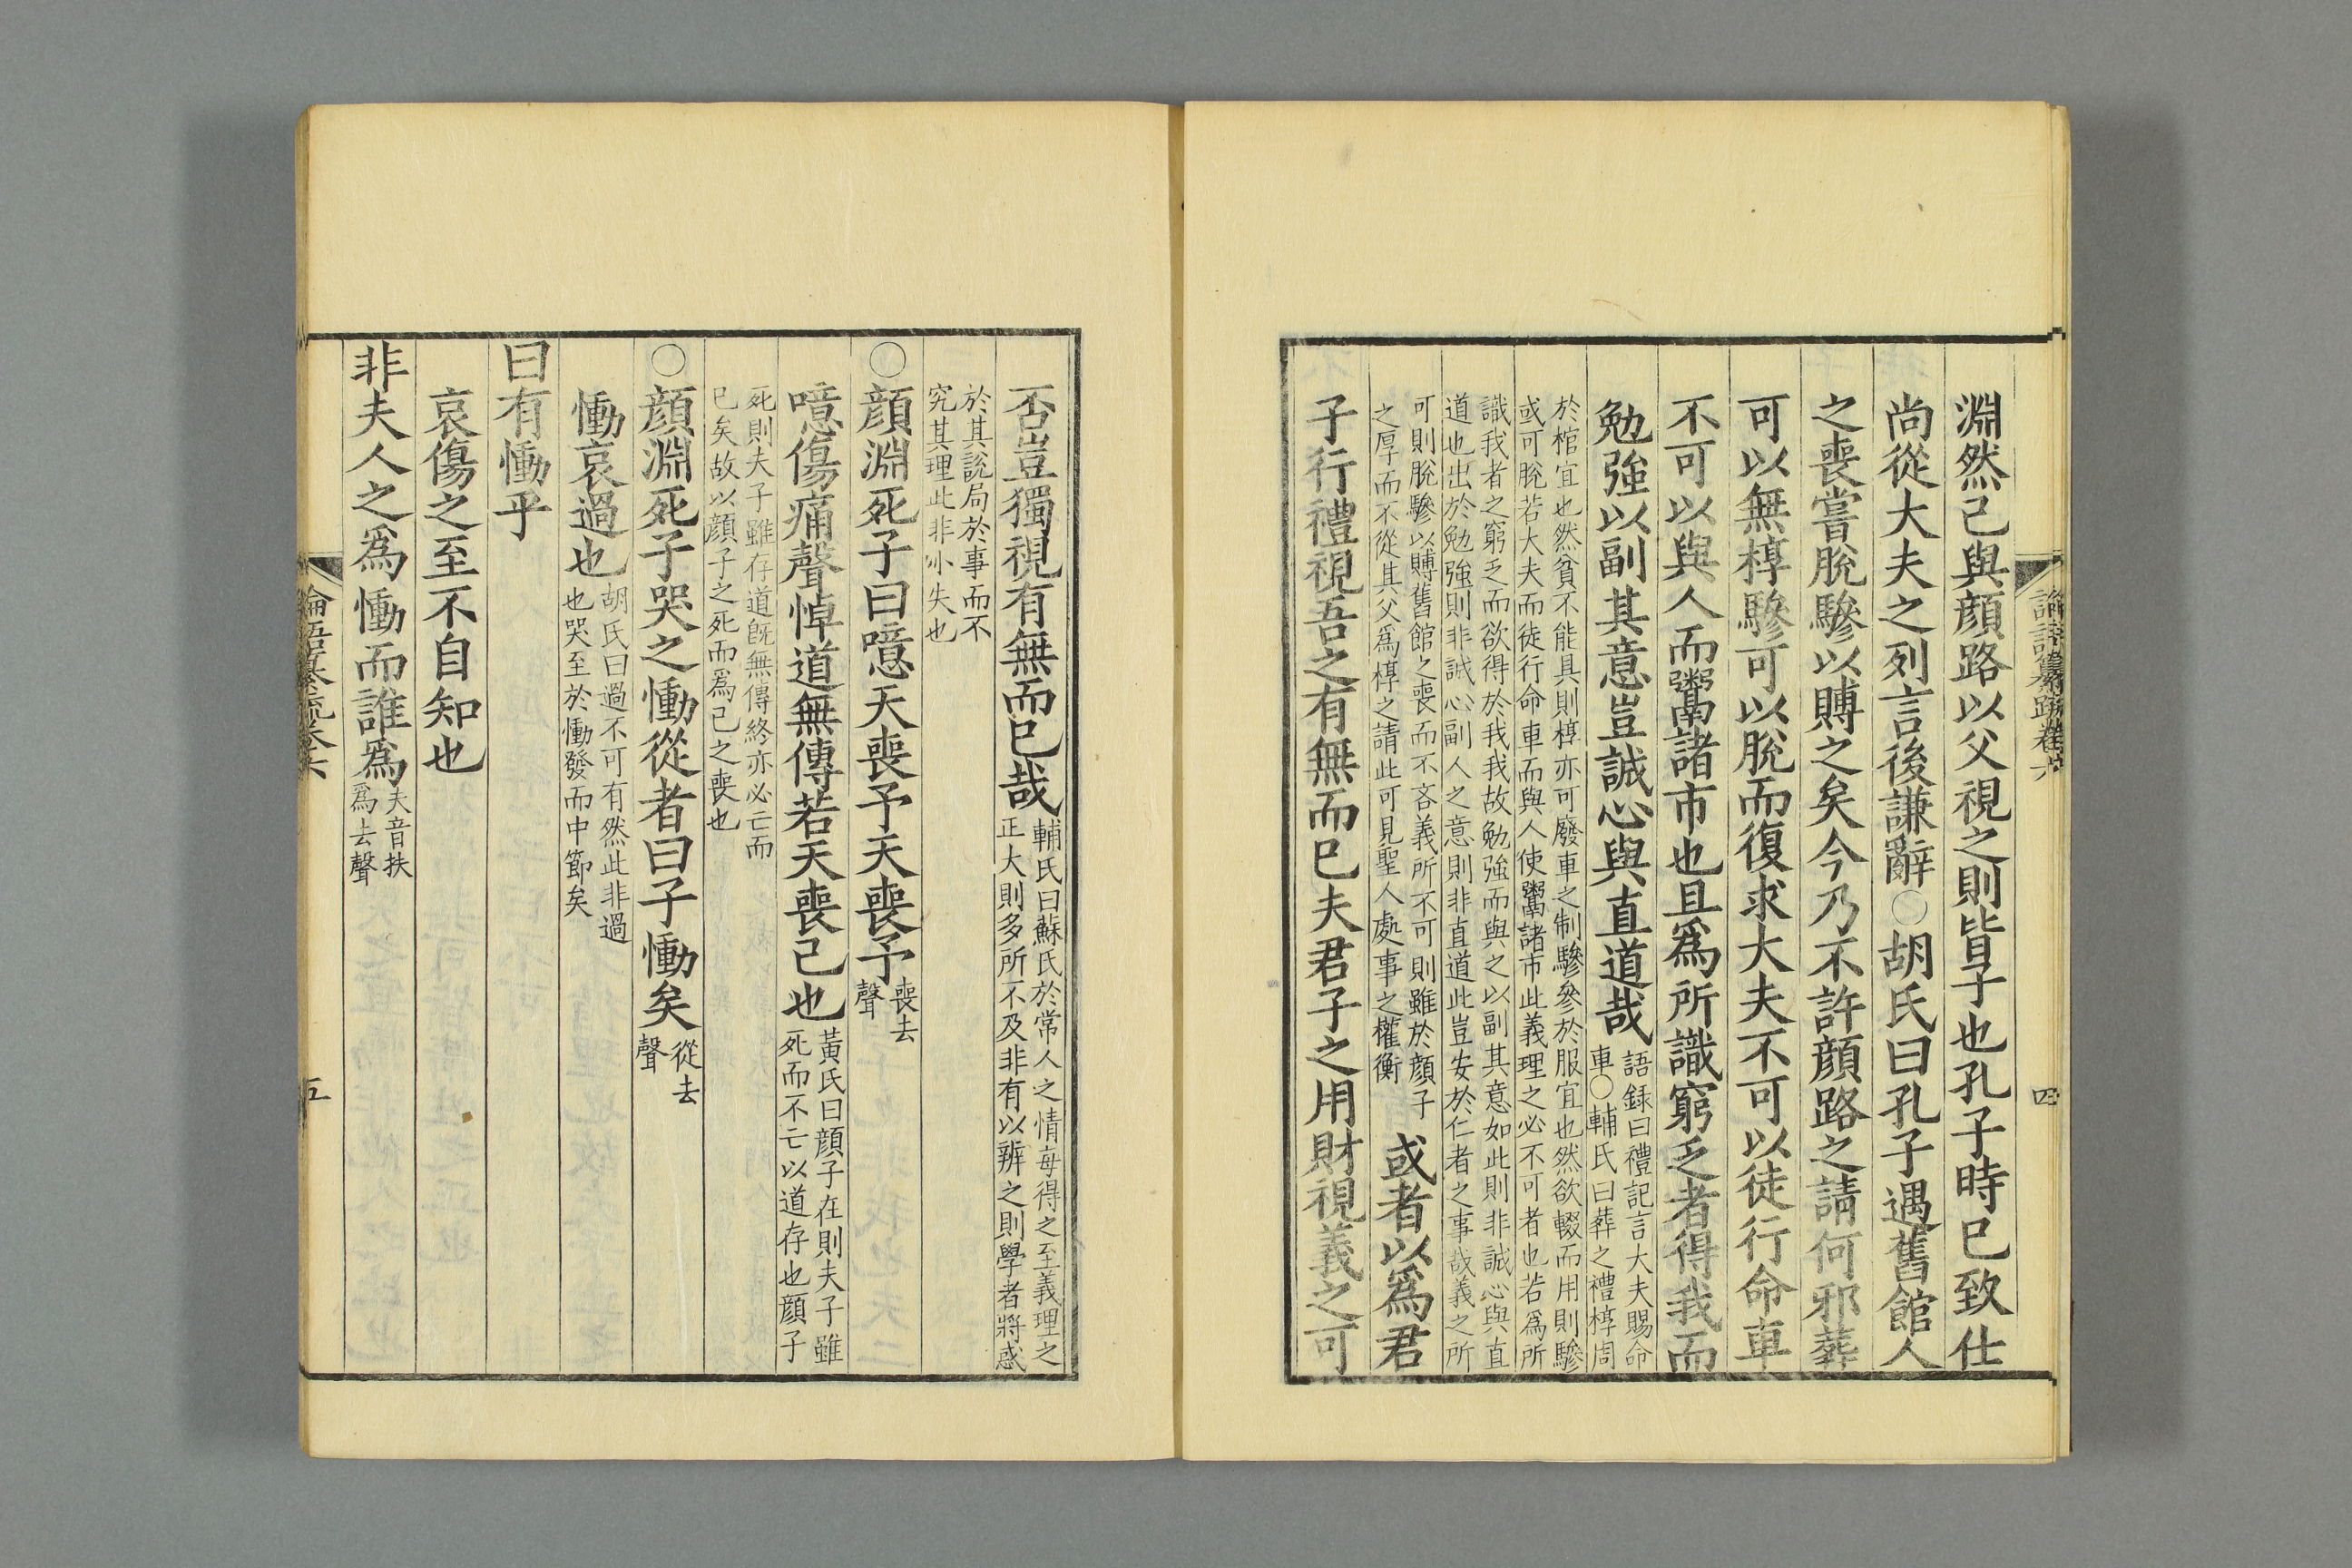 論語纂疏卷六
四
淵然己與顔路以父視之則皆子也孔子時已致仕
尚從大夫之列言後謙辭○胡氏曰孔子遇舊館人
之喪嘗脫驂以賻之矣今乃不許顔路之請何邪葬
可以無椁驂可以脫而復求大夫不可以徒行命車
不可以與人而鬻諸市也且爲所識窮乏者得我而
勉強以副其意豈誠心與直道哉
語録曰禮記言大夫賜命
車○輔氏曰葬之禮椁周
於棺宜也然貧不能具則椁亦可廢車之制驂參於服宜也然欲輟而用則驂
或可脫若大夫而徒行命車而與人使鬻諸市此義理之必不可者也若爲所
識我者之窮乏而欲得於我我故勉強而與之以副其意如此則非誠心與直
道也出於勉強則非誠心副人之意則非直道此豈安於仁者之事哉義之所
可則脫驂以賻舊館之喪而不吝義所不可則雖於顔子
之厚而不從其父爲椁之請此可見聖人處事之權衡
或者以爲君
子行禮視吾之有無而已夫君子之用財視義之可
否豈獨視有無而已哉
輔氏曰蘇氏於常人之情每得之至義理之
正大則多所不及非有以辨之則學者將惑
於其説局於事而不
究其理此非小失也
○顔淵死子曰噫天喪予天喪予
喪去
聲
噫傷痛聲悼道無傳若天喪己也
黃氏曰顔子在則夫子雖
死而不亡以道存也顔子
死則夫子雖存道旣無傳終亦必亡而
已矣故以顔子之死而爲己之喪也
○顔淵死子哭之慟從者曰子慟矣
從去
聲
慟哀過也
胡氏曰過不可有然此非過
也哭至於慟發而中節矣
曰有慟乎
哀傷之至不自知也
非夫人之爲慟而誰爲
夫音扶
爲去聲
論語纂疏卷六
五